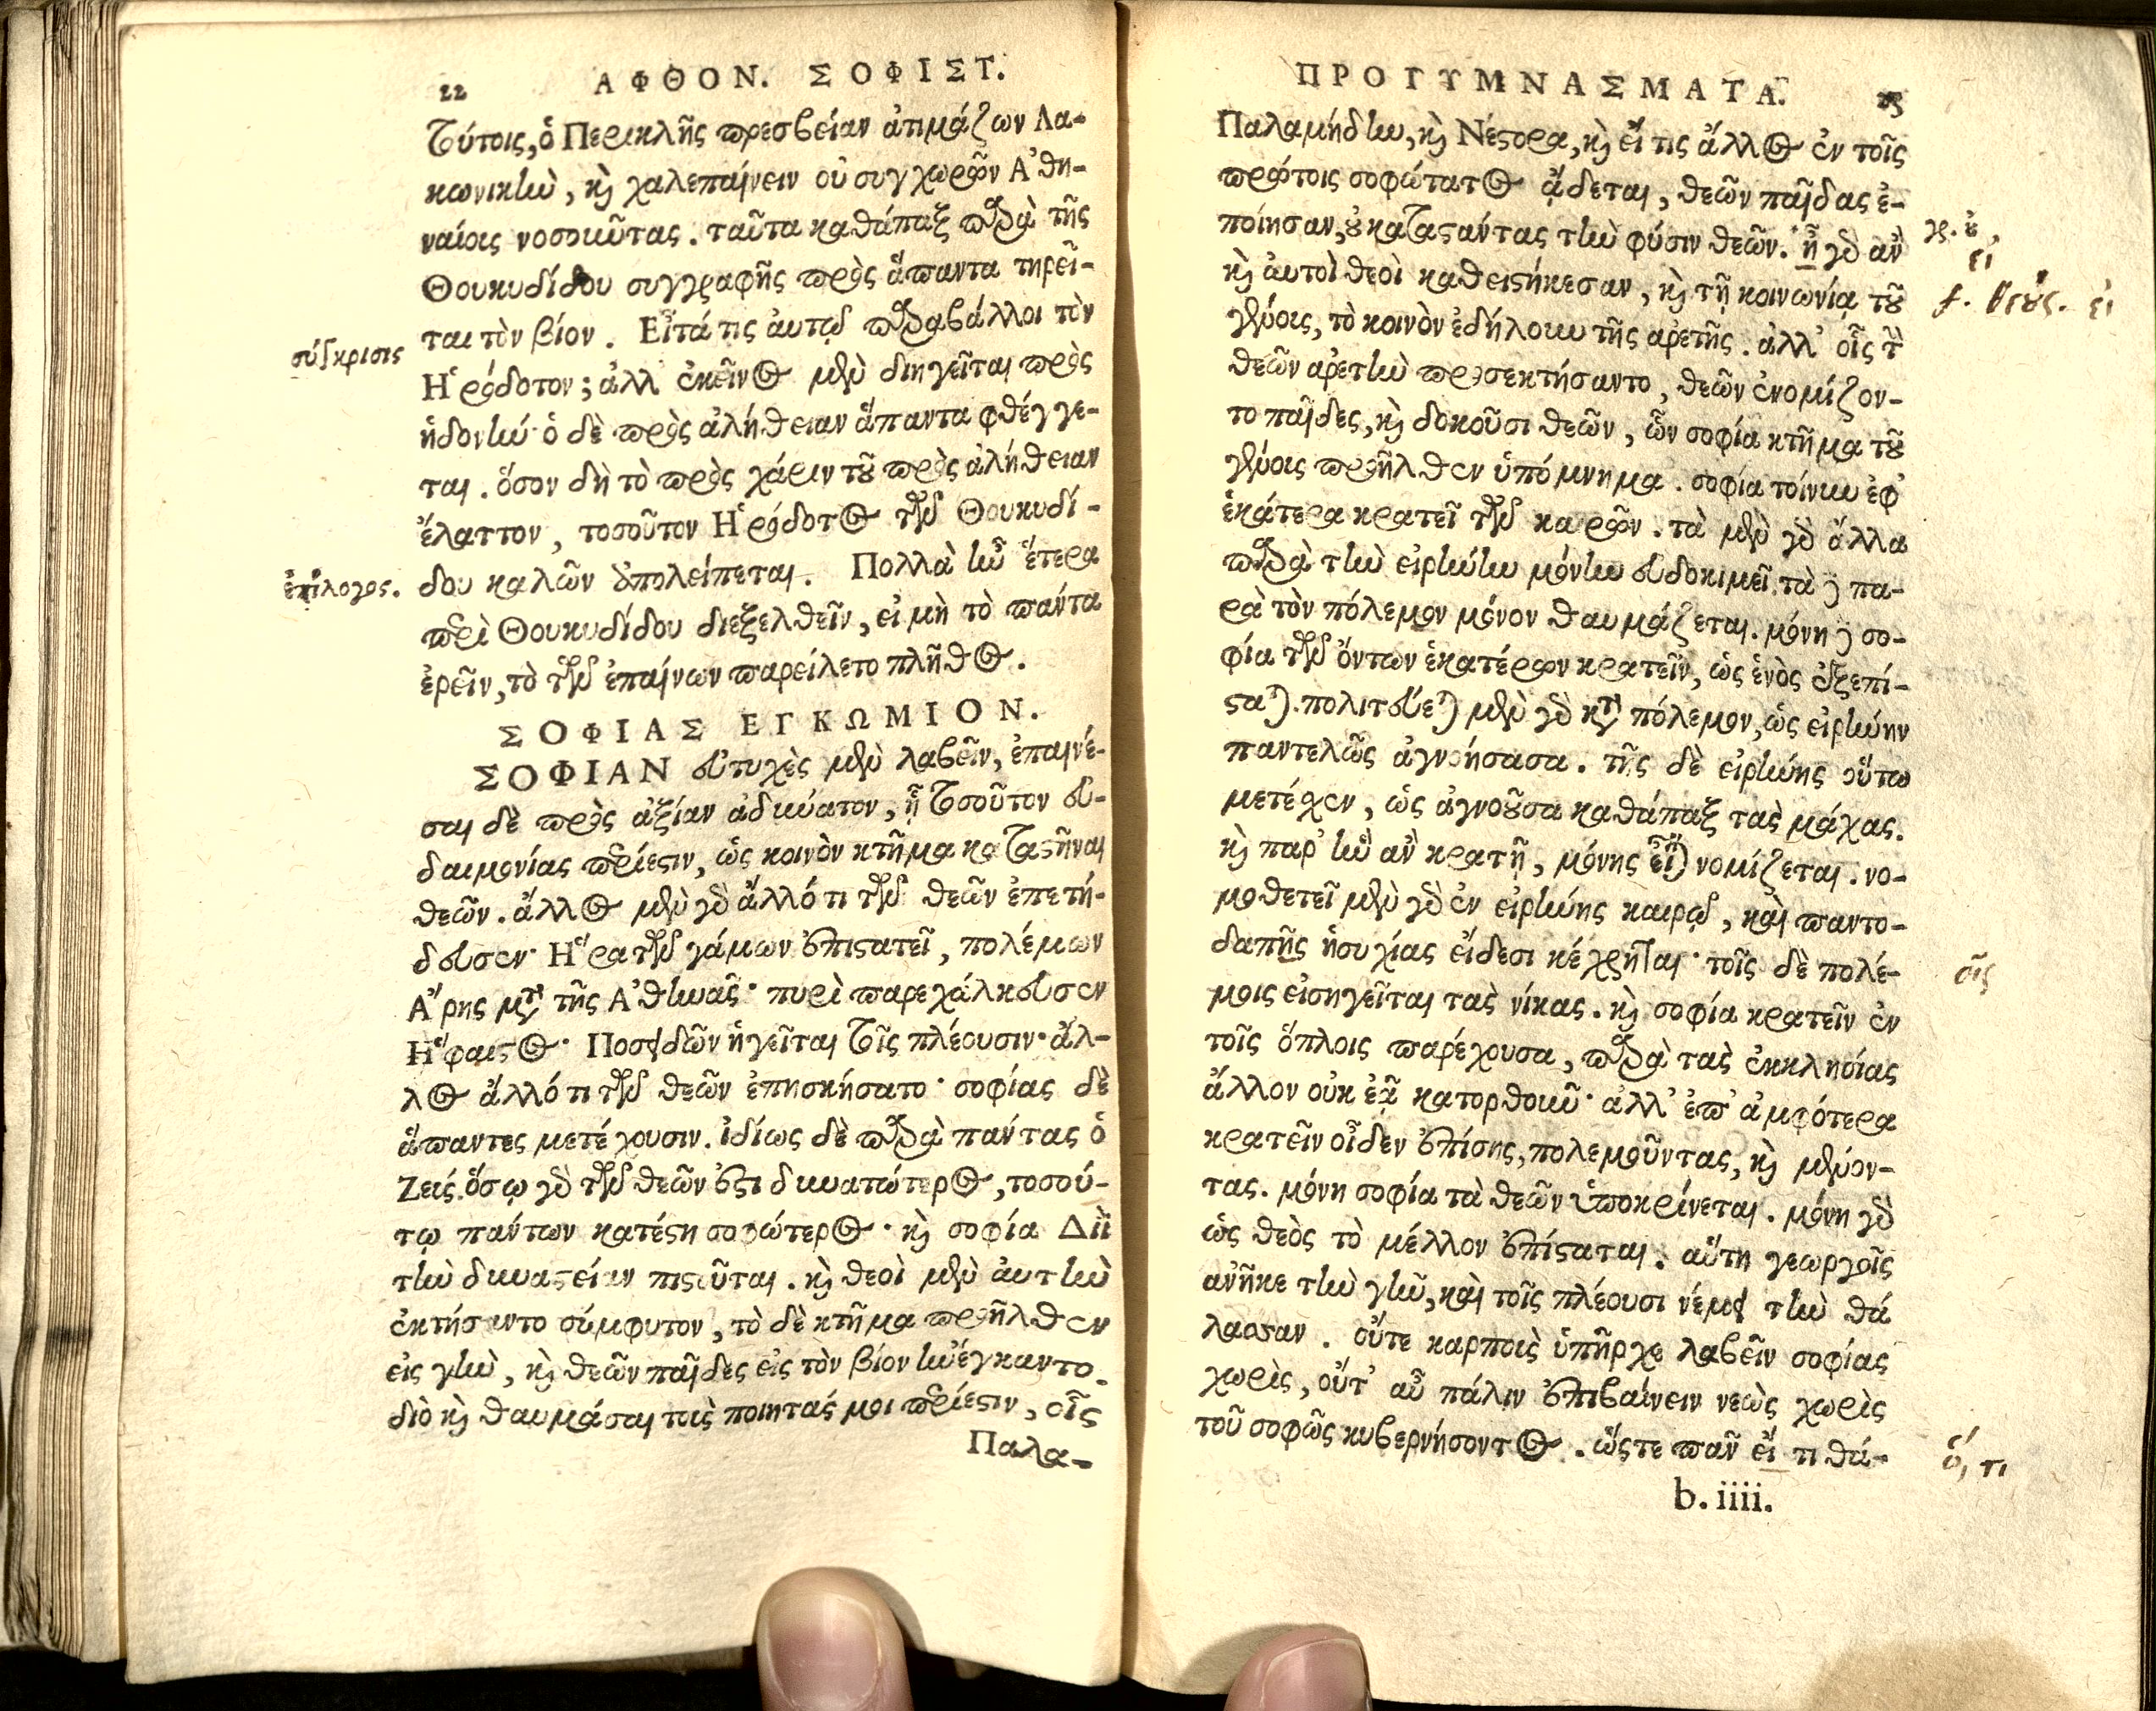 22 ΑΦΘΟΝ. ΣΟΦΙΣΤ.
τύτοις, ὁ Περικλῆς πρεσβείαν ἀτιμάζων Λα-
κωνικὴν, καὶ χαλεπαίνειν οὐ συγχωρῶν Ἀθη-
ναίοις νοσοῦντας. ταῦτα καθάπαξ παρὰ τῆς
Θουκυδίδου συγγραφῆς πρὸς ἅπαντα τηρεῖ-
ται τὸν βίον. Εἶτά τις αὐτῷ παραβάλλοι τὸν
σύγκρισις
Ἡρόδοτον; ἀλλ' ἐκεῖνος μὲν διηγεῖται πρὸς
ἡδονήν· ὁ δὲ πρὸς ἀλήθειαν ἅπαντα φθέγγε-
ται. ὅσον δὴ τὸ πρὸς χάριν τοῦ πρὸς ἀλήθειαν
ἔλαττον, τοσοῦτον Ἡρόδοτος τῶν Θουκυδί-
ἐπίλογος.
δου καλῶν ἀπολείπεται. Πολλὰ ἦν ἕτερα
περὶ Θουκυδίδου διεξελθεῖν, εἰ μὴ τὸ πάντα
ἐρεῖν, τὸ τῶν ἐπαίνων παρείλετο πλῆθος.
ΣΟΦΙΑΣ ΕΓΚΩΜΙΟΝ.
ΣΟΦΙΑΝ εὐτυχὲς μὲν λαβεῖν, ἐπαινέ-
σαι δὲ πρὸς ἀξίαν ἀδύνατον, ἣ τοσοῦτον εὐ-
δαιμονίας περίεστιν, ὡς κοινὸν κτῆμα καταστῆναι
θεῶν. ἄλλος μὲν γὰρ ἄλλό τι τῶν θεῶν ἐπετή-
δευσεν· Ἥρα τῶν γάμων ἐπιστατεῖ, πολέμων
Ἄρης μετὰ τῆς Ἀθηνᾶς· πυρὶ παρεχάλκευσεν
Ἥφαιστος· Ποσειδῶν ἡγεῖται τοῖς πλέουσιν· ἄλ-
λος ἄλλό τι τῶν θεῶν ἐπησκήσατο· σοφίας δὲ
ἅπαντες μετέχουσιν. ἰδίως δὲ παρὰ πάντας ὁ
Ζεύς. ὅσῳ γὰρ τῶν θεῶν ἐστι δυνατώτερος, τοσού-
τῳ πάντων κατέστη σοφώτερος· καὶ σοφία Διῒ
τὴν δυναστείαν πιστοῦται. καὶ θεοὶ μὲν αὐτὴν
ἐκτήσαντο σύμφυτον, τὸ δὲ κτῆμα προῆλθεν
εἰς γῆν, καὶ θεῶν παῖδες εἰς τὸν βίον ἠνέγκαντο.
διὸ καὶ θαυμάσαι τοὺς ποιητάς μοι περίεστιν, οἷς
Παλα-
ΠΡΟΓΥΜΝΑΣΜΑΤΑ. 23
Παλαμήδην, καὶ Νέστορα, καὶ εἴ τις ἄλλος ἐν τοῖς
πρώτοις σοφώτατος ᾄδεται, θεῶν παῖδας ἐ-
ποίησαν, οὐ καταστάντας τὴν φύσιν θεῶν. ἦ γὰρ ἂν
γρ. οὐ,
εἰ
καὶ αὐτοὶ θεοὶ καθειστήκεσαν, καὶ τῇ κοινωνίᾳ τοῦ
f. θεούς. εἰ
γένους, τὸ κοινὸν ἐδήλουν τῆς ἀρετῆς. ἀλλ' οἷς τὴν
θεῶν ἀρετὴν προσεκτήσαντο, θεῶν ἐνομίζον-
το παῖδες, καὶ δοκοῦσι θεῶν, ὧν σοφία κτῆμα τοῦ
γένους προῆλθεν ὑπόμνημα. σοφία τοίνυν ἐφ'
ἑκάτερα κρατεῖ τῶν καιρῶν. τὰ μὲν γὰρ ἄλλα
παρὰ τὴν εἰρήνην μόνην εὐδοκιμεῖ, τὰ δὲ πα-
ρὰ τὸν πόλεμον μόνον θαυμάζεται. μόνη δὲ σο-
φία τῶν ὄντων ἑκατέρων κρατεῖν, ὡς ἑνὸς ἐξεπί-
σταται. πολιτεύεται μὲν γὰρ κατὰ πόλεμον, ὡς εἰρήνην
παντελῶς ἀγνοήσασα. τῆς δὲ εἰρήνης οὕτω
μετέχεν, ὡς ἀγνοοῦσα καθάπαξ τὰς μάχας.
καὶ παρ' ἣν ἂν κρατῇ, μόνης εἶναι νομίζεται. νο-
μοθετεῖ μὲν γὰρ ἐν εἰρήνης καιρῷ, καὶ παντο-
δαπῆς ἡσυχίας εἴδεσι κέχρηται· τοῖς δὲ πολέ-
οῖς
μοις εἰσηγεῖται τὰς νίκας. καὶ σοφία κρατεῖν ἐν
τοῖς ὅπλοις παρέχουσα, παρὰ τὰς ἐκκλησίας
ἄλλον οὐκ ἐᾷ κατορθοῦν· ἀλλ' ἐπ' ἀμφότερα
κρατεῖν οἶδεν ἐπίσης, πολεμοῦντας, καὶ μένον-
τας. μόνη σοφία τὰ θεῶν ὑποκρίνεται. μόνη γὰρ
ὡς θεὸς τὸ μέλλον ἐπίσταται. αὕτη γεωργοῖς
ἀνῆκε τὴν γῆν, καὶ τοῖς πλέουσι νέμει τὴν θά
λασσαν. οὔτε καρποὺς ὑπῆρχε λαβεῖν σοφίας
χωρὶς, οὔτ' αὖ πάλιν ἐπιβαίνειν νεὼς χωρὶς
τοῦ σοφῶς κυβερνήσοντος. ὥστε πᾶν εἴ τι θά-
ὅ, τι
b. iiii.